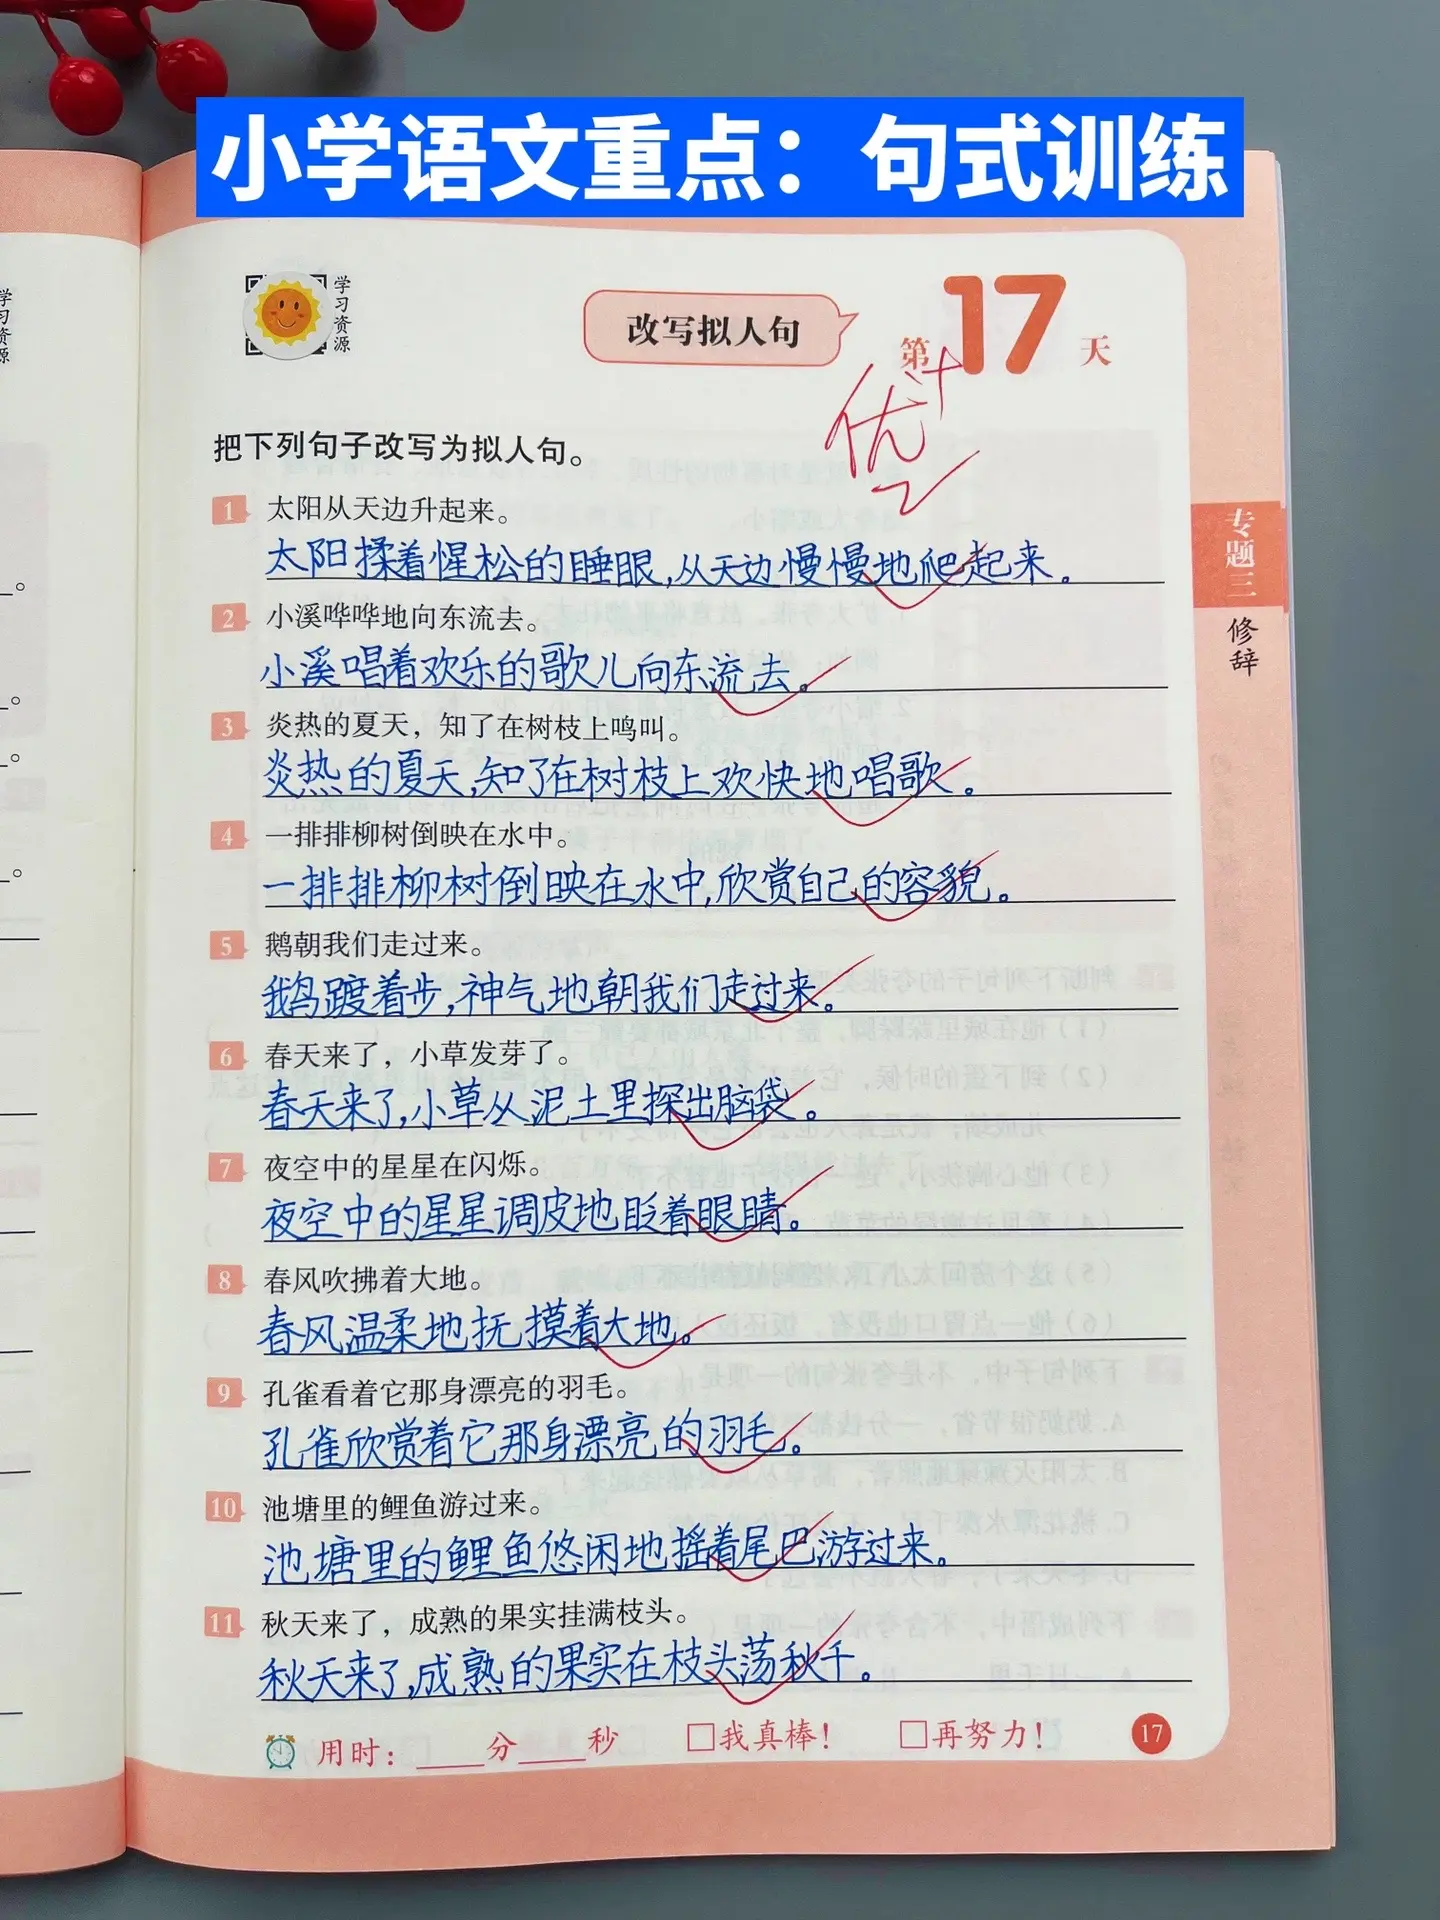 小学语文重点：句式训练
学习资源
改写拟人句
第17天
优+
把下列句子改写为拟人句。
1 太阳从天边升起来。
太阳揉着惺松的睡眼,从天边慢慢地爬起来。
2 小溪哗哗地向东流去。
小溪唱着欢乐的歌儿向东流去。
3 炎热的夏天，知了在树枝上鸣叫。
炎热的夏天,知了在树枝上欢快地唱歌。
4 一排排柳树倒映在水中。
一排排柳树倒映在水中,欣赏自己的容貌。
5 鹅朝我们走过来。
鹅踱着步,神气地朝我们走过来。
6 春天来了，小草发芽了。
春天来了,小草从泥土里探出脑袋。
7 夜空中的星星在闪烁。
夜空中的星星调皮地眨着眼睛。
8 春风吹拂着大地。
春风温柔地抚摸着大地。
9 孔雀看着它那身漂亮的羽毛。
孔雀欣赏着它那身漂亮的羽毛。
10 池塘里的鲤鱼游过来。
池塘里的鲤鱼悠闲地摇着尾巴游过来。
11 秋天来了，成熟的果实挂满枝头。
秋天来了,成熟的果实在枝头荡秋千。
用时：____分____秒 □我真棒！ □再努力！
17
专题三
修辞